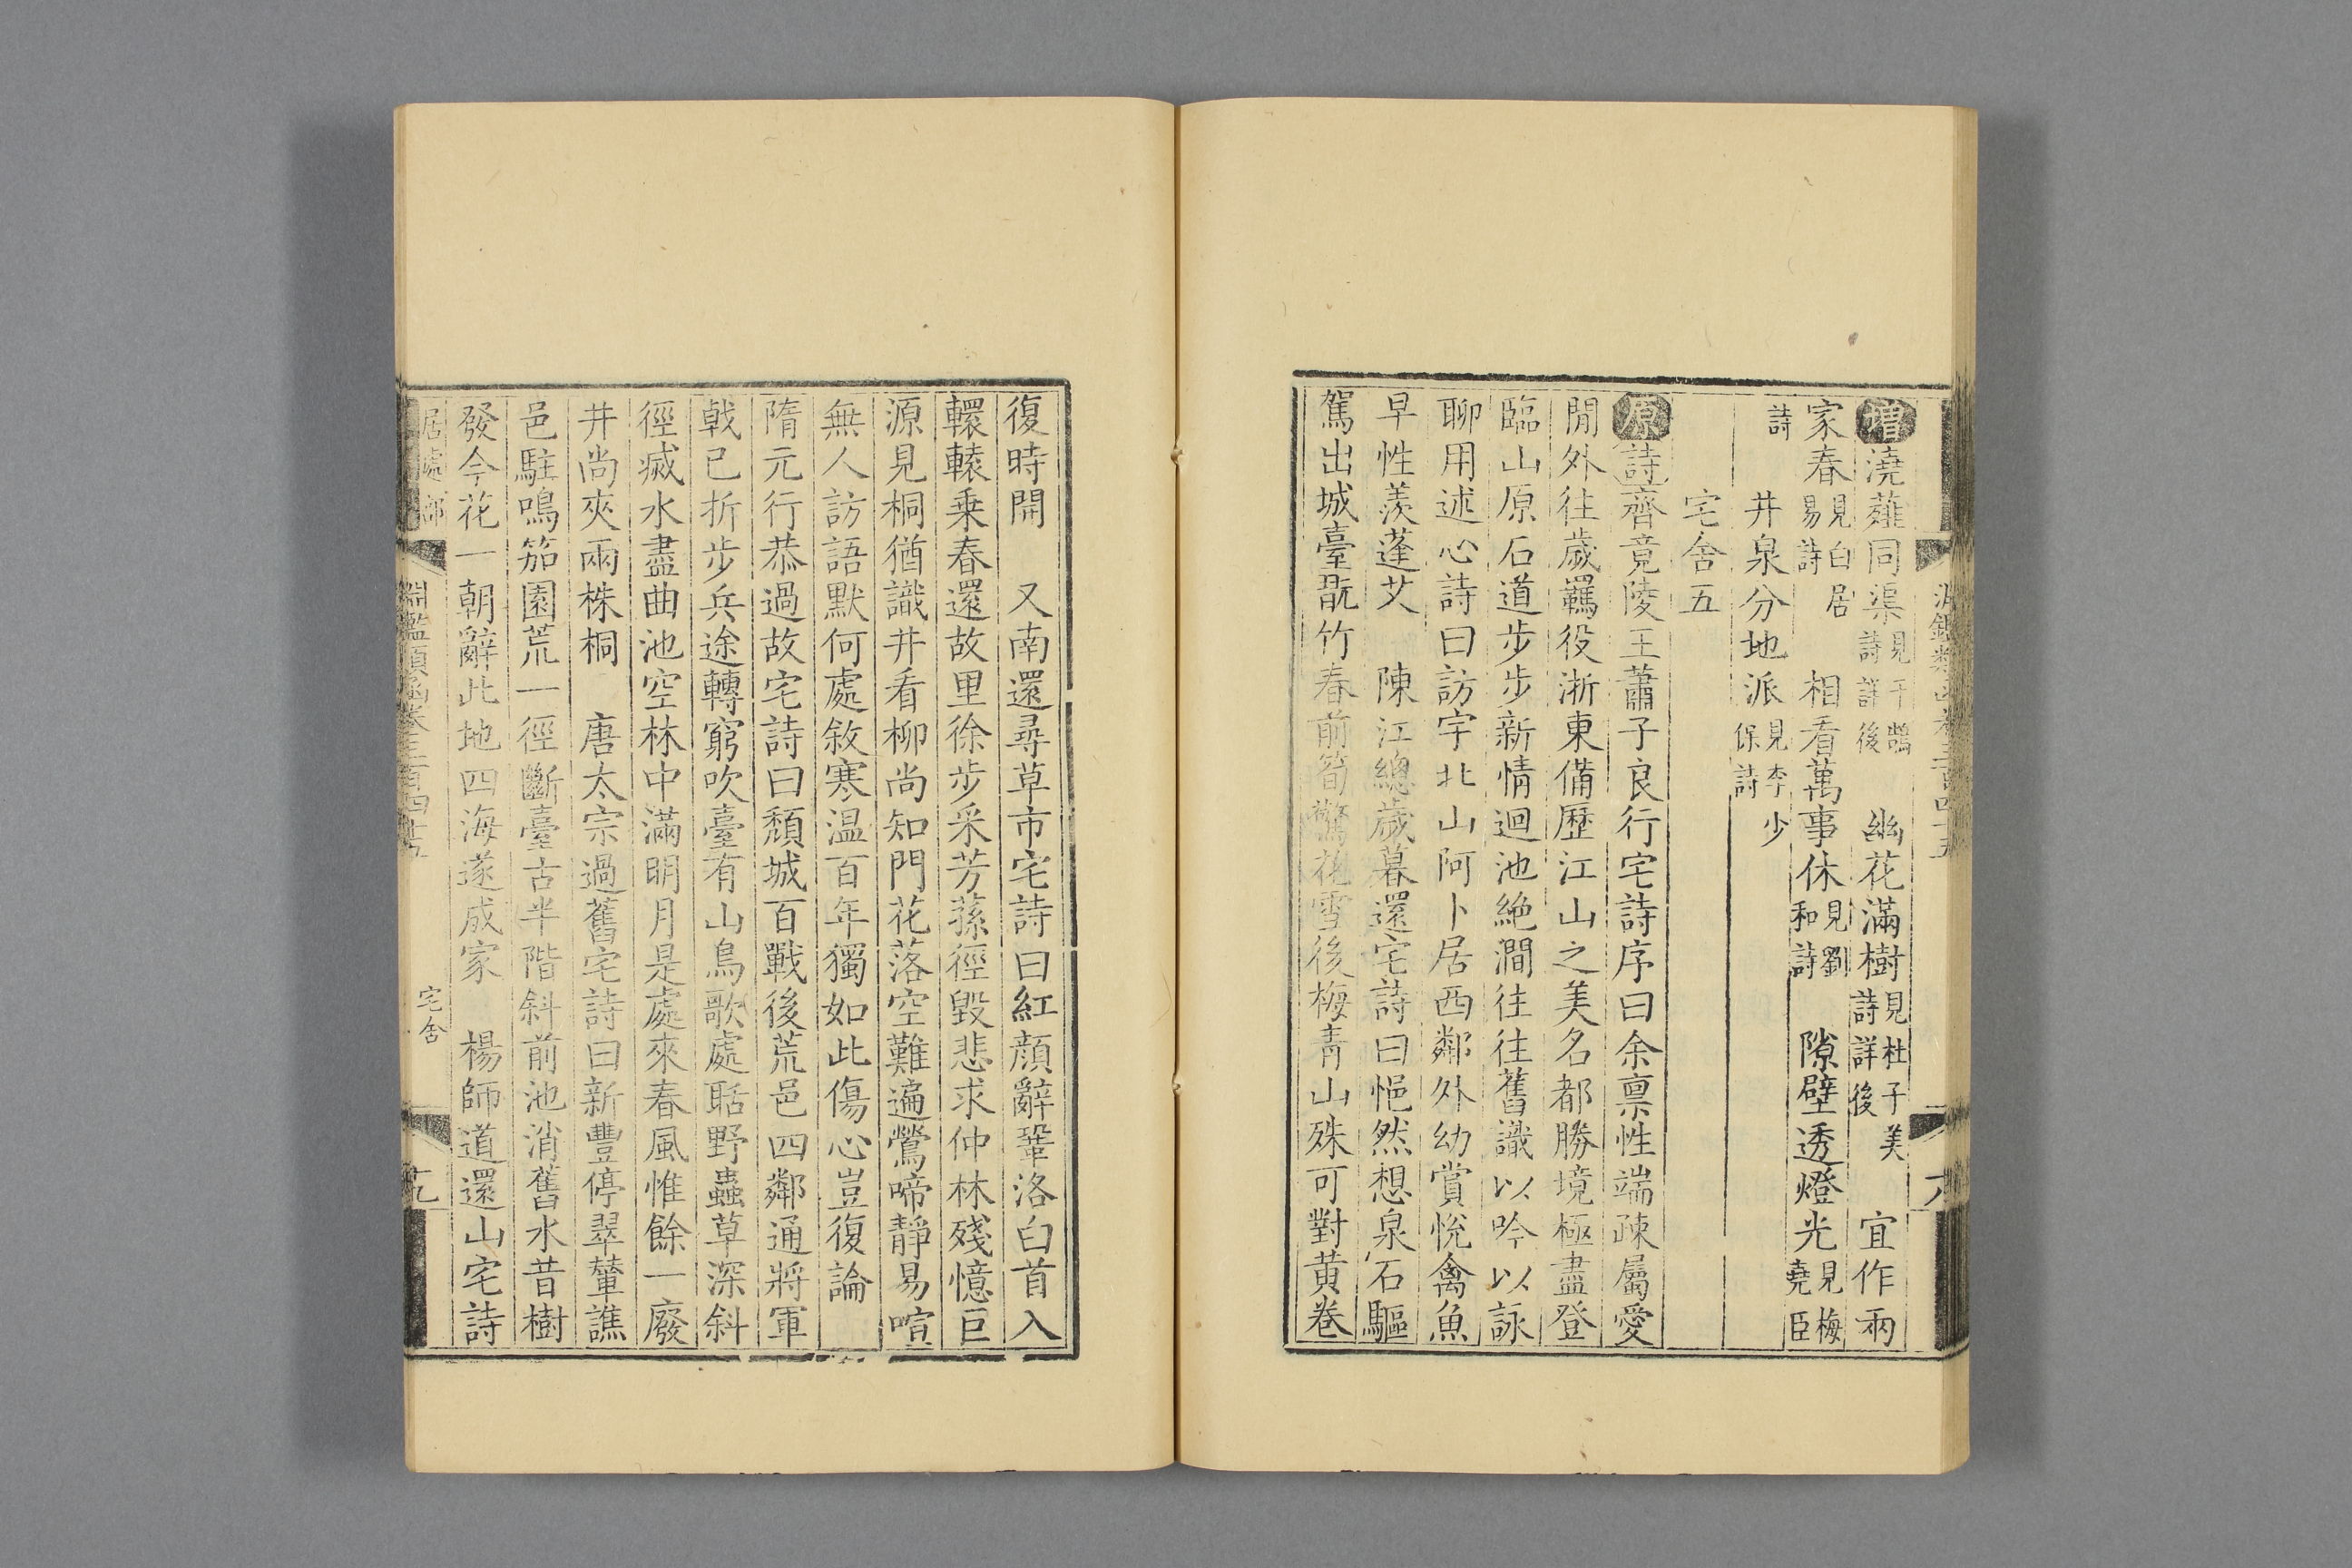 增澆薤同渠見于鵠詩詳後 幽花滿樹見杜子美詩詳後 宜作兩
家春見白居易詩 相看萬事休見劉和詩 隙壁透燈光見梅堯臣
詩 井泉分地派見李少保詩
宅舍五
原詩齊竟陵王蕭子良行宅詩序曰余禀性端疎屬愛
閒外往歲羈役浙東備歷江山之美名都勝境極盡登
臨山原石道步步新情迴池絶澗往往舊識以吟以詠
聊用述心詩曰訪宇北山阿卜居西鄰外幼賞悅禽魚
早性羨蓬艾 陳江總歲暮還宅詩曰悒然想泉石驅
駕出城臺翫竹春前筍驚花雪後梅青山殊可對黄卷
復時開 又南還尋草市宅詩曰紅顔辭鞏洛白首入
轘轅乗春還故里徐步采芳蓀徑毀悲求仲林殘憶巨
源見桐猶識井看柳尚知門花落空難遍鶯啼靜易喧
無人訪語默何處敘寒温百年獨如此傷心豈復論
隋元行恭過故宅詩曰頹城百戰後荒邑四鄰通將軍
戟已折步兵途轉窮吹臺有山鳥歌處聒野蟲草深斜
徑滅水盡曲池空林中滿明月是處來春風惟餘一廢
井尚夾兩株桐 唐太宗過舊宅詩曰新豐停翠輦譙
邑駐鳴笳園荒一徑斷臺古半階斜前池消舊水昔樹
發今花一朝辭此地四海遂成家 楊師道還山宅詩
居處部 淵鑑類函卷三百四十五 宅舍 十九